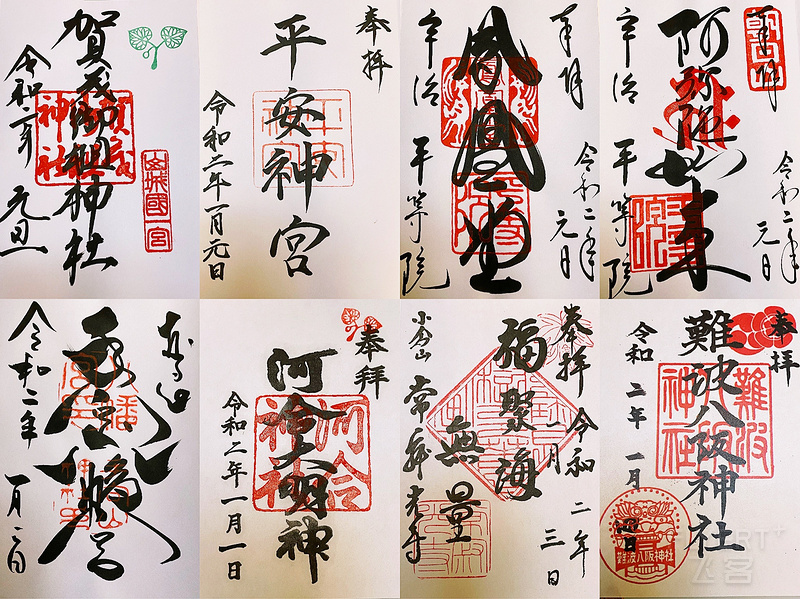 賀茂御祖神社
賀茂
神社
山城國一宮
令和二年
元旦
奉拝
平安神宮
平安
神宮
令和二年一月元日
奉拝
鳳凰堂
令和二年
元日
宇治 平等院
奉拝
阿弥陀如来
令和二年
元日
宇治 平等院
令和二年
一月二日
奉拝
河合大明神
河合
神社
令和二年一月一日
奉拝
令和二年
一月三日
福聚海
無量
小倉山
常寂光寺
奉拝
難波八阪神社
難波
八阪
神社
令和二年一月
四日
難波八阪神社
飞客